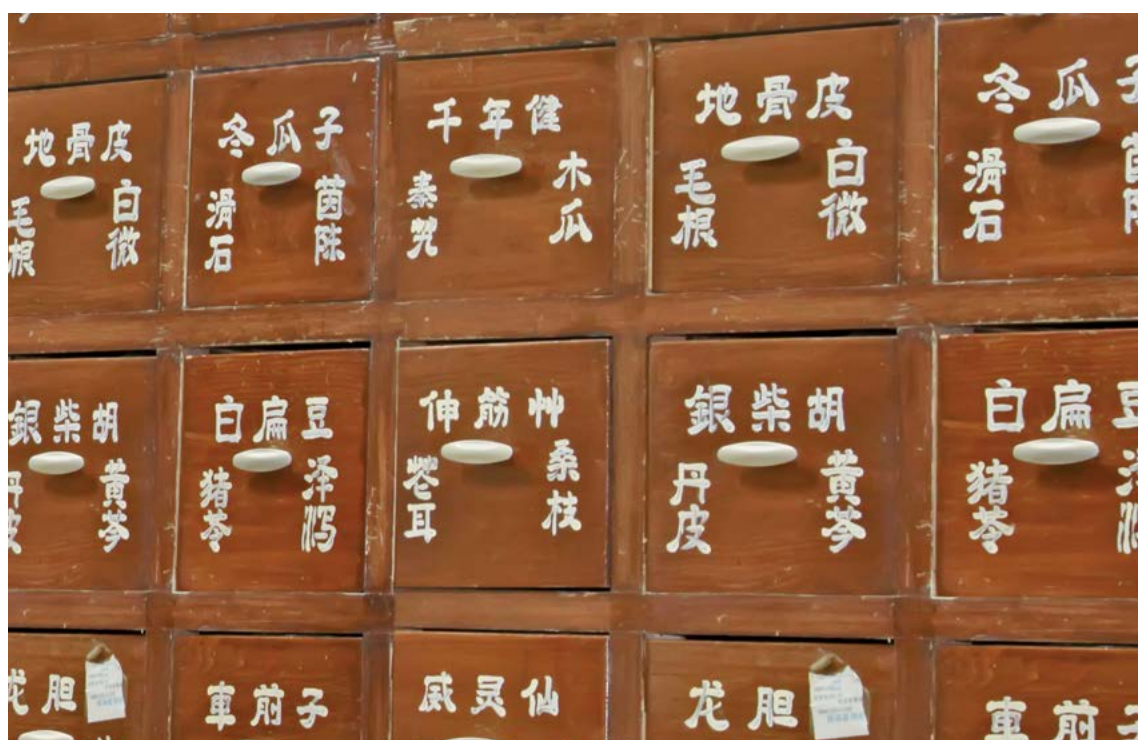 地骨皮
毛根
白微
冬瓜子
滑石
茵陈
千年健
秦艽
木瓜
地骨皮
毛根
白微
冬瓜子
滑石
銀柴胡
丹皮
黄芩
白扁豆
猪苓
泽泻
伸筋艸
苍耳
桑枝
銀柴胡
丹皮
黄芩
白扁豆
猪苓
龙胆
車前子
威灵仙
龙胆
車前子